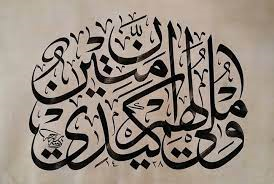 وأملي لهم إنَّ كيدي متين